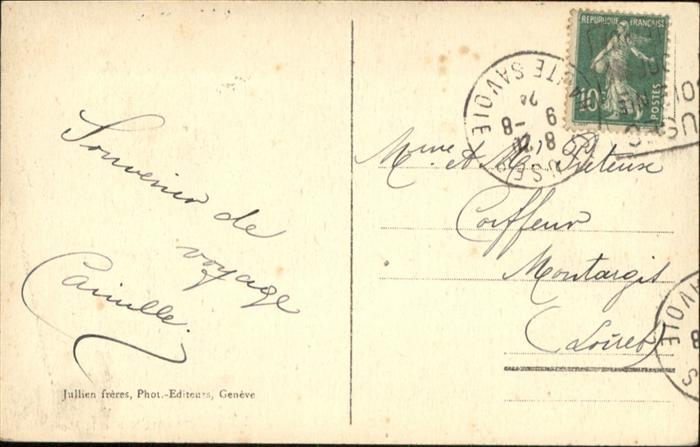 Souvenir de
voyage
Camille.
Jullien frères, Phot.-Editeurs, Genève
REPUBLIQUE FRANÇAISE
10
POSTES
HAUTE SAVOIE
Mme et Mr
Coiffeur
Montargis
(Loiret)
SAVOIE